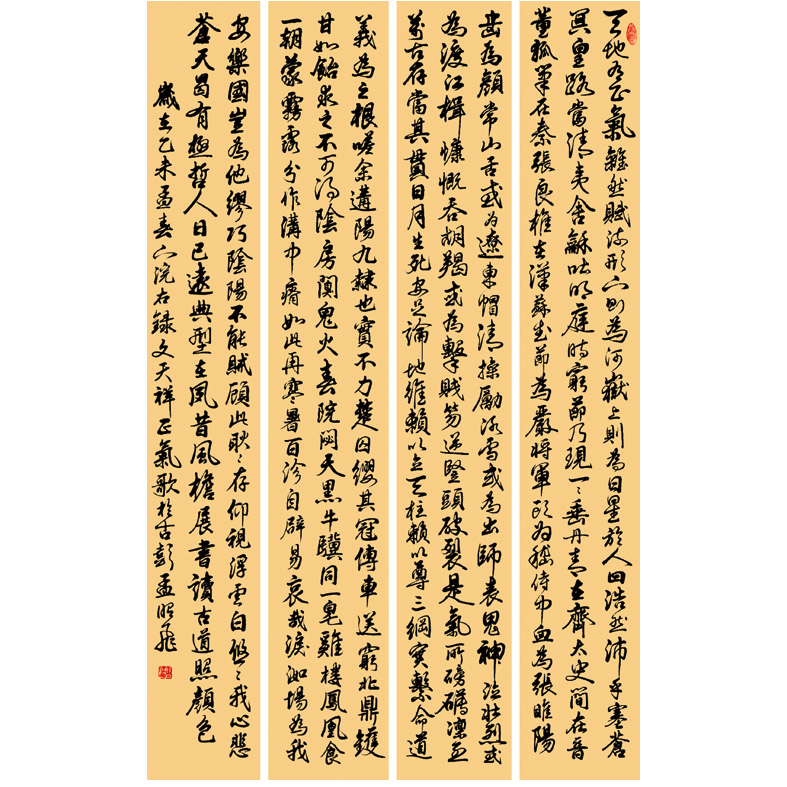 天地有正氣雜然賦流形下則為河嶽上則為日星於人曰浩然沛乎塞蒼
冥皇路當清夷含龢吐明庭時窮節乃現一々垂丹青在齊太史簡在晉
董狐筆在秦張良椎在漢蘇武節為嚴將軍頭為嵇侍中血為張睢陽
齒為顏常山舌或為遼東帽清操勵冰雪或為出師表鬼神泣壯烈或
為渡江楫慷慨吞胡羯或為擊賊笏逆豎頭破裂是氣所磅礴凜
萬古存當其貫日月生死安足論地維賴以立天柱賴以尊三綱實繫命道
義為之根嗟余遘陽九隸也實不力楚囚纓其冠傳車送窮北鼎鑊
甘如飴求之不可得陰房闃鬼火春院閟天黑牛驥同一皂雞棲鳳凰食
一朝蒙霧露分作溝中瘠如此再寒暑百沴自辟易哀哉洳場為我
安樂國豈為他繆巧陰陽不能賊顧此耿々存仰視浮雲白悠々我心悲
蒼天曷有極哲人日已遠典型在夙昔風檐展書讀古道照顏色
歲在乙未孟春下浣右錄文天祥正氣歌於古彭孟昭飛